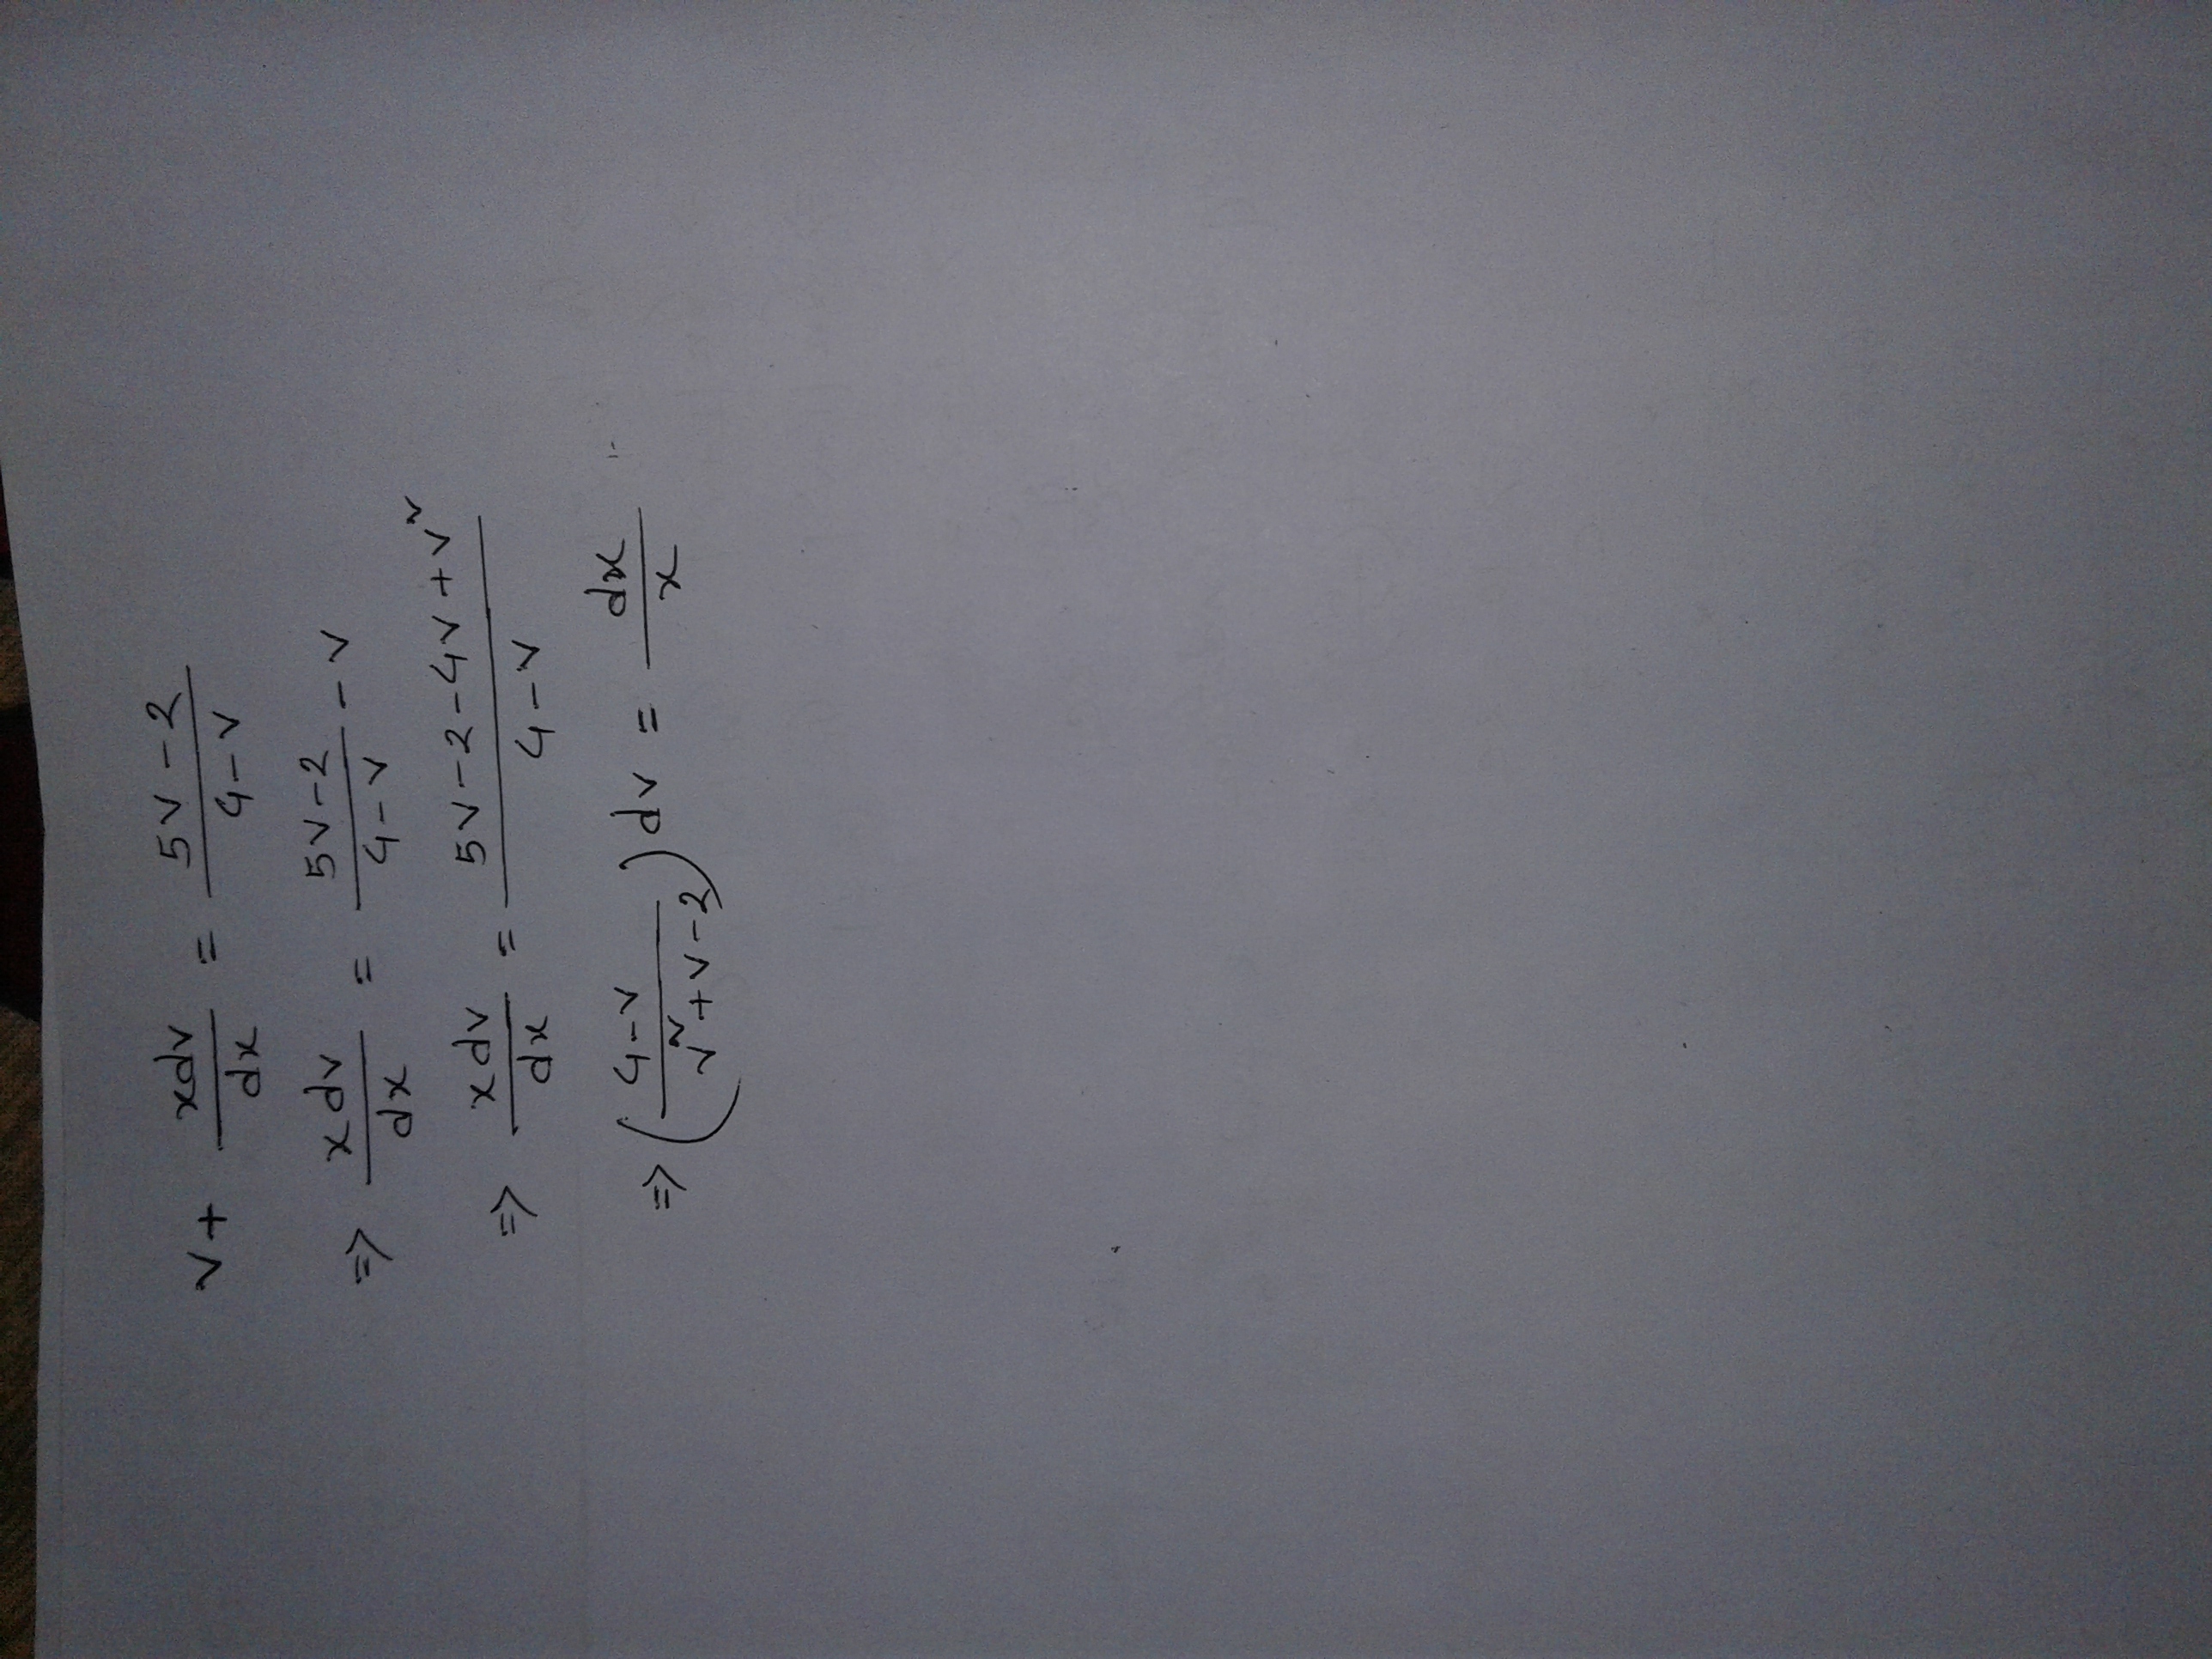 v + xdv/dx = 5v-2/4-v
=> xdv/dx = 5v-2/4-v - v
=> xdv/dx = 5v-2-4v+v²/4-v
=> (4-v/v²+v-2) dv = dx/x